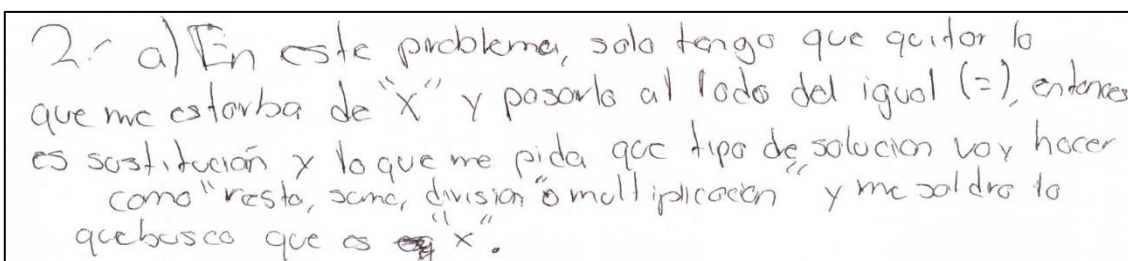 2.- a) En este problema, solo tengo que quitar lo
que me estorba de "x" y pasarlo al lado del igual (=), entonces
es sustitución y lo que me pida que tipo de solucion voy hacer
como "resta, suma, división o multiplicación" y me saldra lo
que busco que es "x".